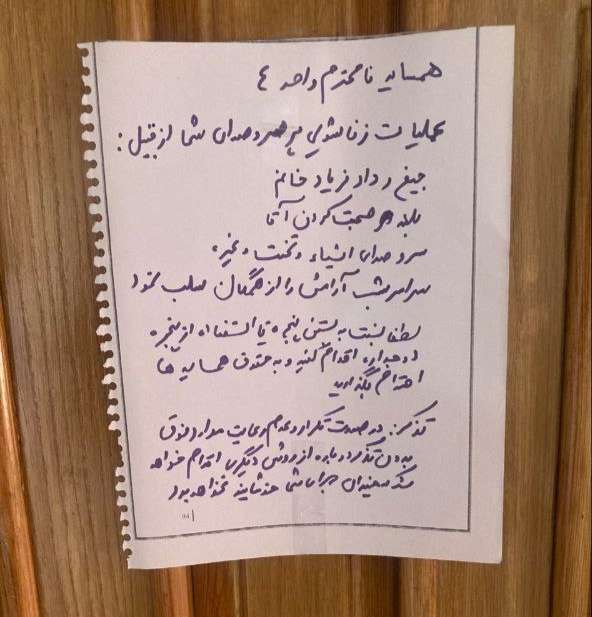 همسایه نامحترم واحد ٤
عملیات زناشوئی پر سر و صدای شما از قبیل :
جیغ و داد و فریاد خانم
بلند صحبت کردن آقا
سر و صدای اشیاء و تخت و غیره
سراسر شب آرامش را از همگان سلب نمود
لطفا نسبت به بستن پنجره یا استفاده از پنجره
دو جداره اقدام کنید و به حقوق همسایه ها
احترام بگذارید
تذکر: در صورت تکرار و عدم رعایت موارد فوق
بدون تذکر دوباره از روش دیگری اقدام خواهد
شد که چندان برای شما خوشایند نخواهد بود